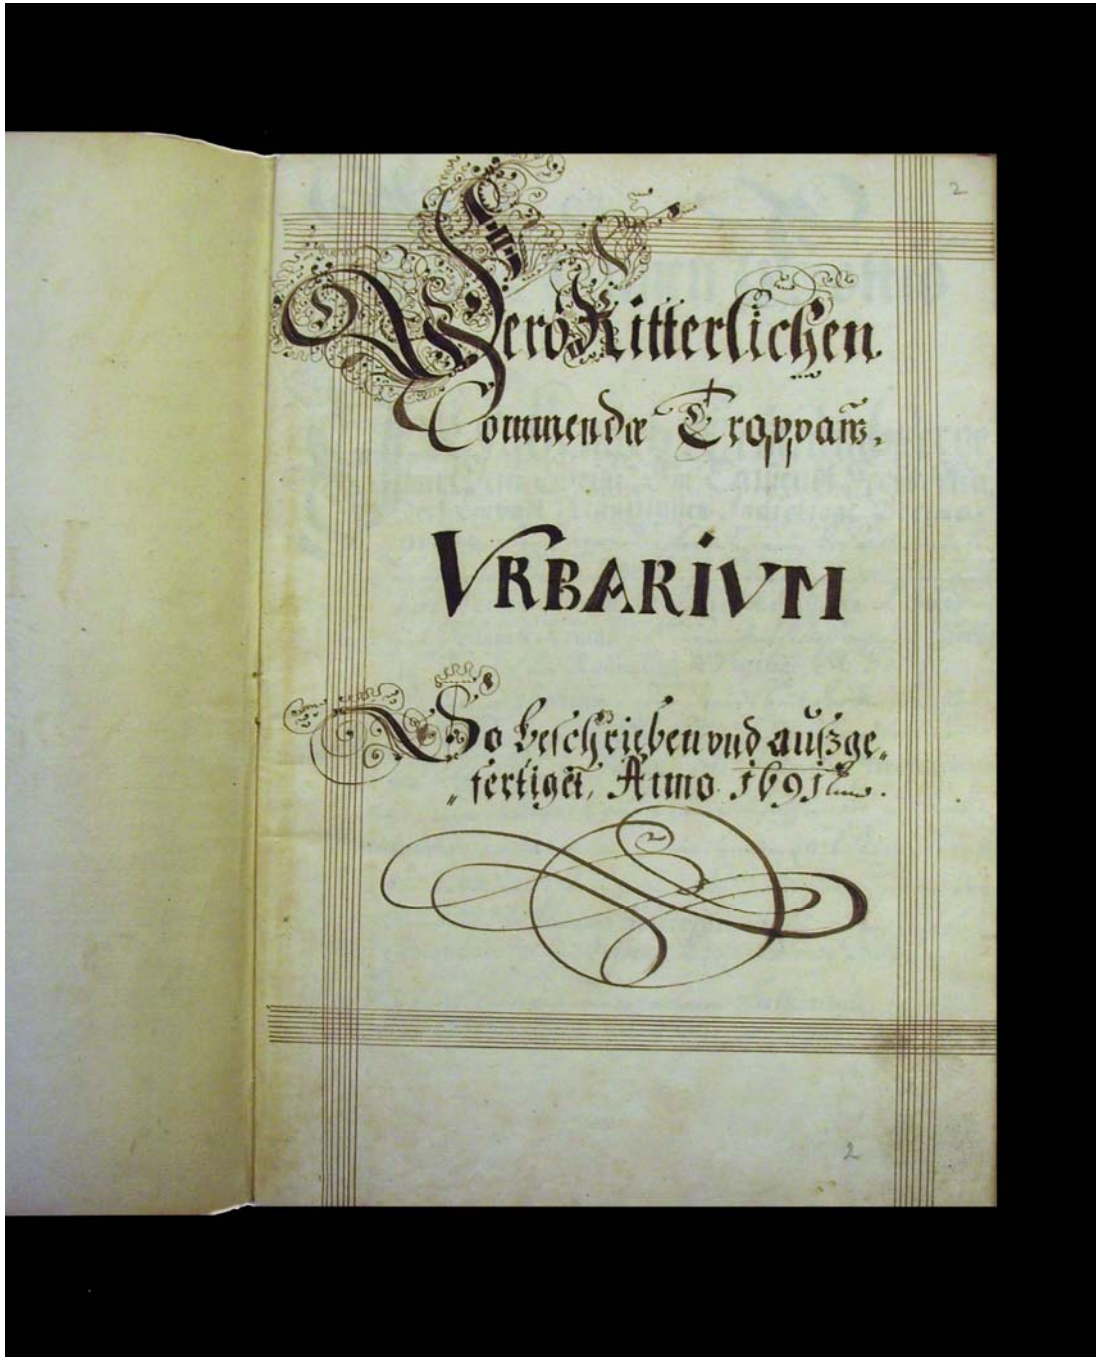 2
Dero Ritterlichen
Commendæ Troppaw,
VRBARIVM
So beschrieben vnd außge„
„fertiget, Anno 1691
2